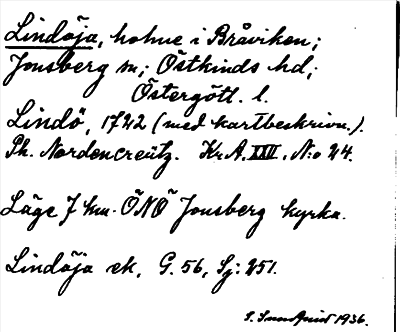 Lindöja, holme i Bråviken;
Jonsberg sn; Östkinds hd;
Östergötl. l.
Lindö, 1742 (med kartbeskrivn.).
Ph. Nordencreutz. Kr. A. XXII. N:o 24.
Läge 7 km. ÖNÖ Jonsberg kyrka.
Lindöja ek, G. 56, Sj: 251.
S. Sundqvist 1936.